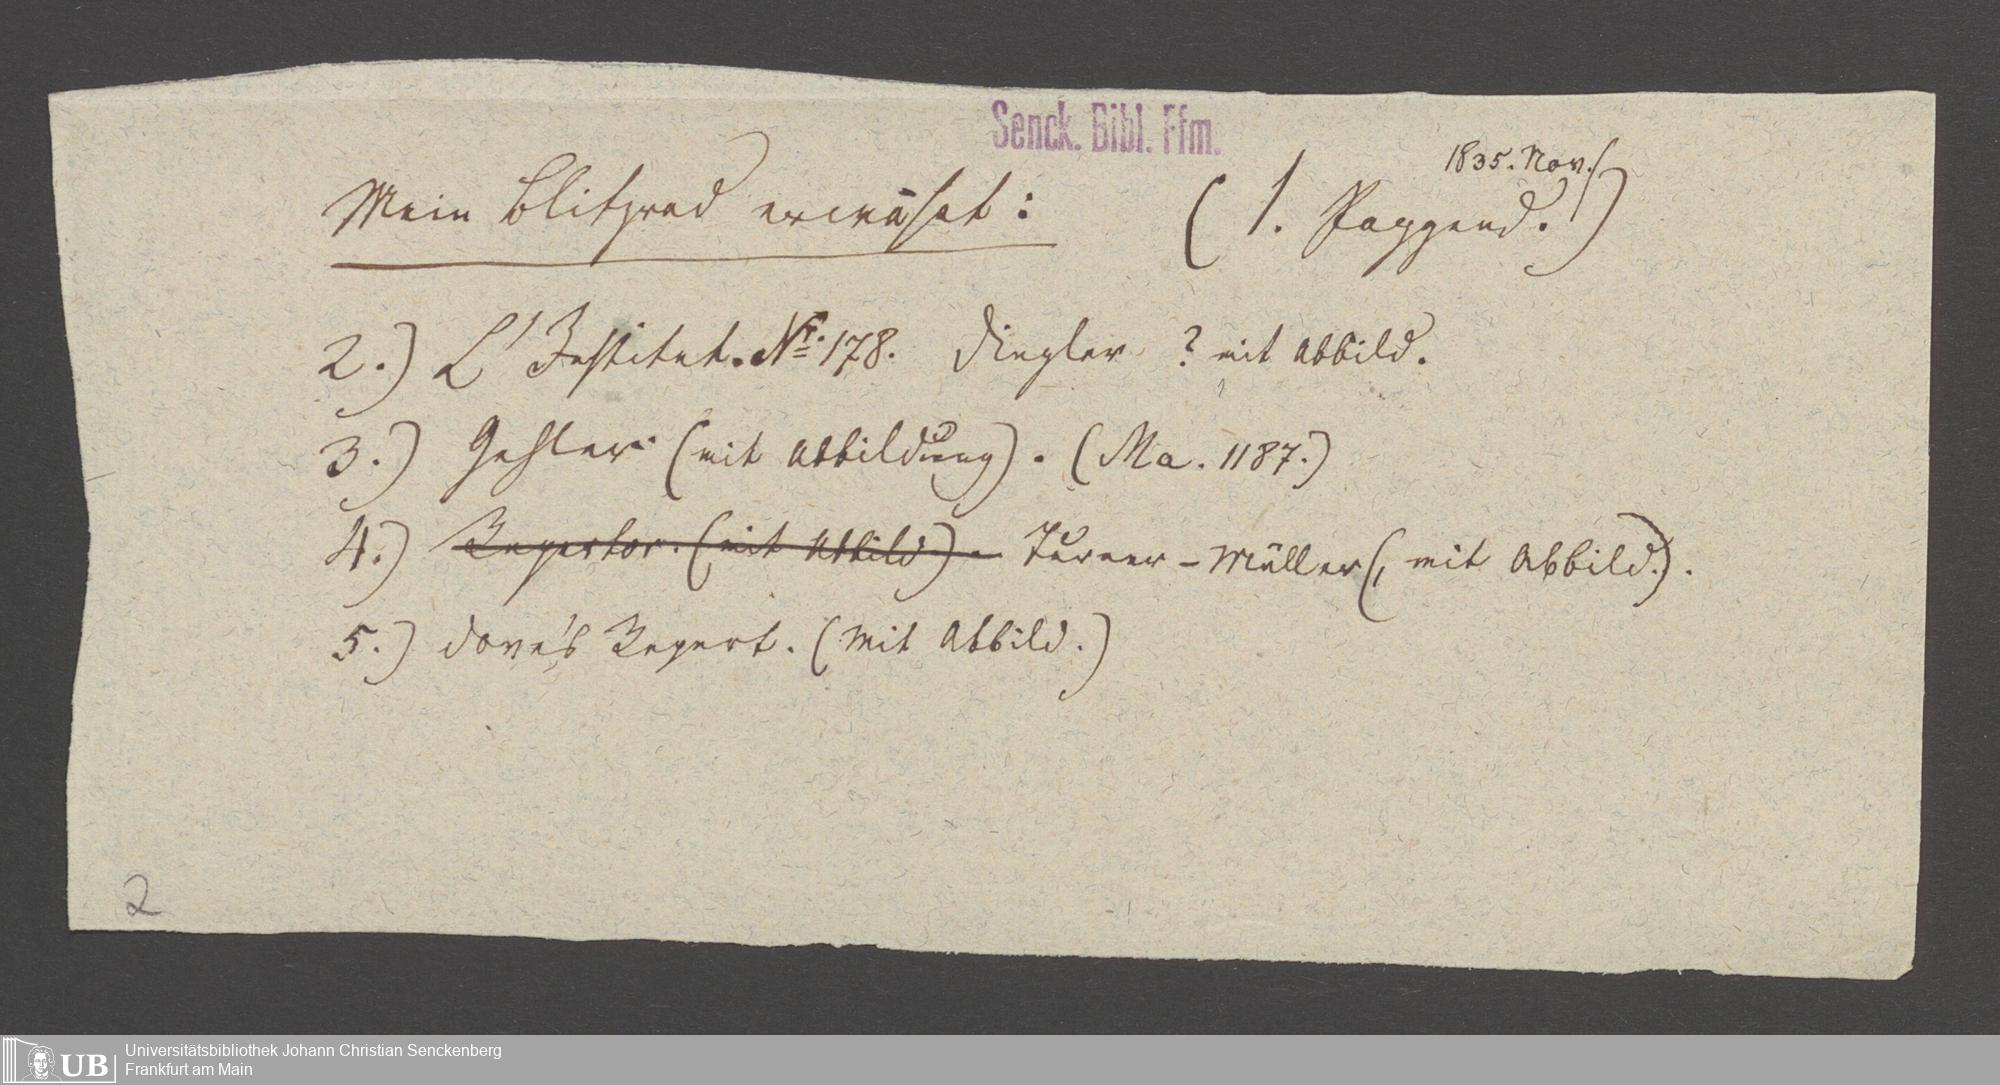 Senck. Bibl. Ffm.
1835. Nov.
Mein Blitzrad erwähnt: (1. Poggend.)
2.) L'Institut. Nr. 178. Dingler ? mit Abbild.
3.) Gehler (mit Abbildung). (Ma. 1187.)
4.) Repertor. (mit Abbild). Turner - Müller (, mit Abbild.).
5.) Dove's Repert. (mit Abbild.)
2
UB Universitätsbibliothek Johann Christian Senckenberg
Frankfurt am Main